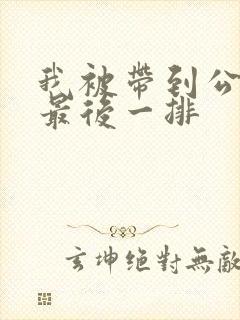 我被帶到公
最後一排
玄坤絕對無敵